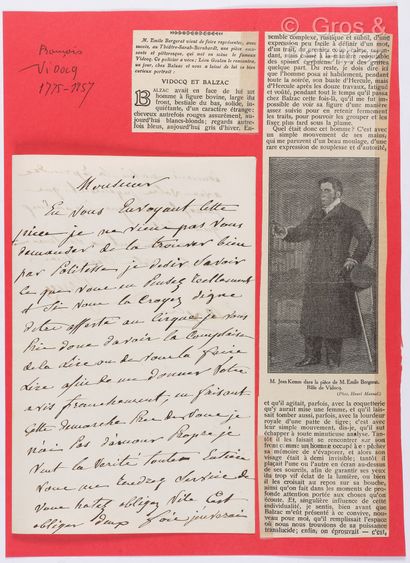 © Gros &
Bangnis
VIDOCQ
1775-1857
M. Emile Bergerat vient de faire représenter, avec
succès, au Théâtre-Sarah-Bernhardt, une pièce amu-
sante et pittoresque, qui met en scène le fameux
Vidocq. Ce policier a vécu; Léon Gozlan le rencontra,
un jour, chez Balzac et nous a laissé de lui ce bien
curieux portrait :
VIDOCQ ET BALZAC
BALZAC avait en face de lui un
homme à figure bovine, large du
front, bestiale du bas, solide, in-
quiétante, d'un caractère étrange :
cheveux autrefois rouges assurément, au-
jourd'hui blancs-blonds; regards autre-
fois bleus, aujourd'hui gris d'hiver. En-
semble complexe, rustique et subtil, d'une
expression peu facile à définir d'un mot,
d'un trait, de premier coup
quelque part.
Du reste, je dois dire ici
que l'homme posa si habilement, pendant
toute la soirée, son buste herculéen, mais
d'Hercule après les douze travaux, fatigué
et voûté, pendant tout le temps qu'il passa
chez Balzac cette fois-là, qu'il me fut im-
possible de voir sa figure d'une manière
assez suivie pour en retenir fermement
les traits, pour pouvoir les grouper et les
fixer plus tard sous la plume.
Quel était donc cet homme? C'est avec
un simple mouvement de ses mains,
qui me parurent d'un beau moulage, d'une
rare expression de souplesse et d'autorité,
M. Jean Kemm dans la pièce de M. Emile Bergerat.
Rôle de Vidocq.
(Phot. Henri Manuel.)
et qu'il agitait, parfois, avec la coquetterie
qu'y aurait mise une femme, et qu'il lais-
sait tomber aussi, parfois, avec la lourdeur
royale d'une patte de tigre; c'est avec
leur simple mouvement, dis-je, qu'il sut
échapper à toute minutieuse analyse. Tan-
tôt il les faisait se rencontrer sur son
front comme un homme occupé à empêcher
sa mémoire de s'évaporer, et alors son
visage était à demi invisible; tantôt il
plaçait l'une ou l'autre en écran au-dessus
de ses sourcils, afin de garantir ses yeux
du trop vif éclat de la lumière, ou bien
il les croisait au repos sur sa bouche,
ainsi qu'on fait dans des moments de pro-
fonde attention portée aux choses qu'on
écoute. Et, singulière influence de cette
individualité, je sentis, bien avant que
Balzac m'eût présenté à ce convive, nou-
veau pour moi, qu'il remplissait l'espace
où nous nous trouvions de sa puissance
translucide; enfin, on éprouvait — c'est,
Monsieur
En vous Envoyant cette
pièce je ne viens pas vous
demander de la trouver bien
par Politesse je désire savoir
ce que vous en Pensez Reellement
et si vous la croyez digne
d'être offerte au cirque je vous
Prie donc d'avoir la Complaisance
de la Lire ou de vous la faire
Lire afin de me donner votre
avis franchement, en faisant
cette démarche Près de vous je
n'ai Pas d'amour Propre je
veux la Vérité toute Entière
vous me rendrez service de
vous hatez obligez Vite C'est
obliger Deux fois